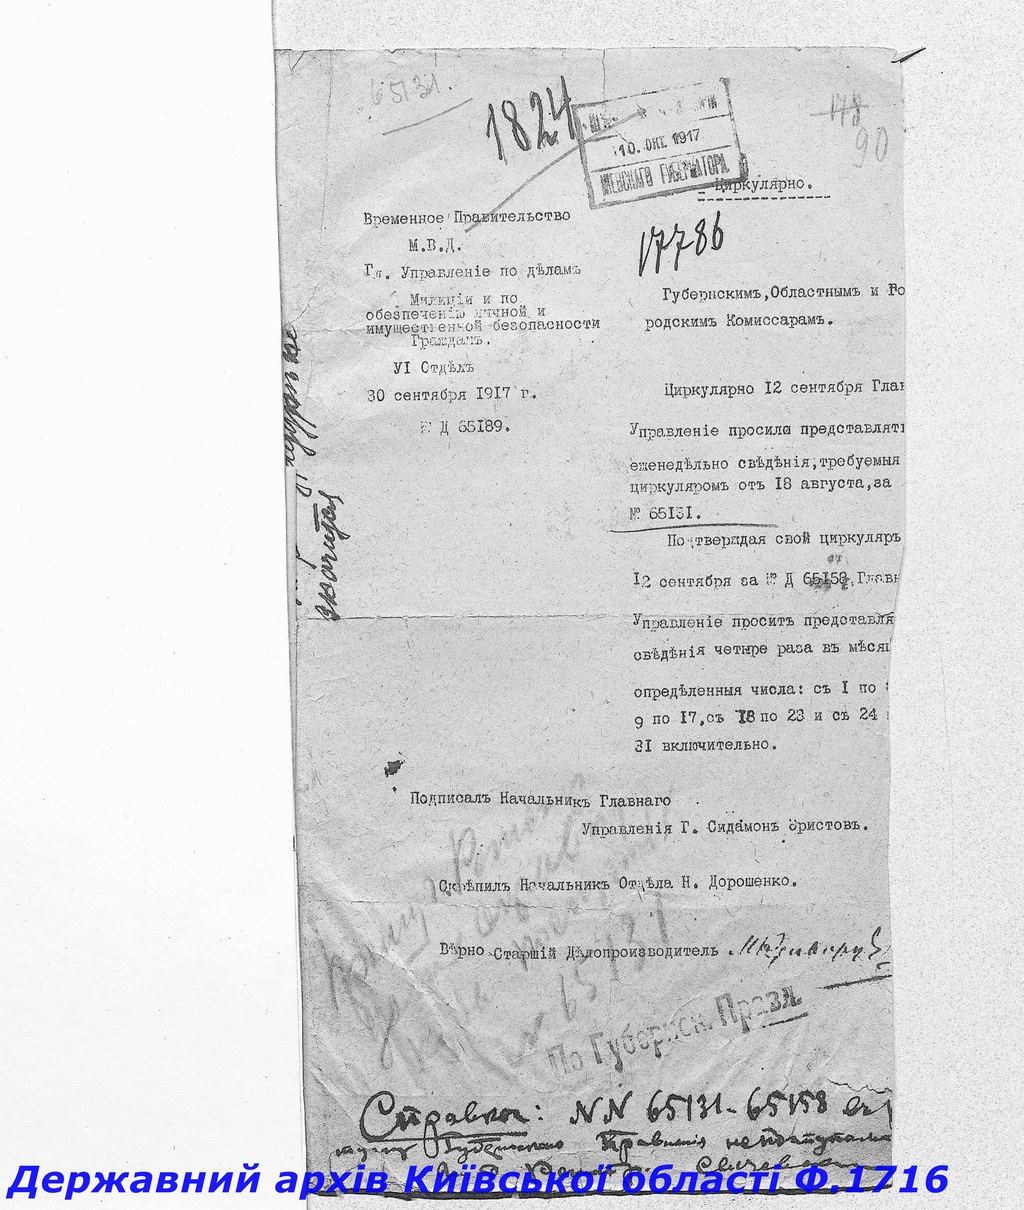 65131.
1824
178
90
10. ОКТ. 1917
КІЕВСКАГО ГУБЕРНАТОРА
Циркулярно.
17786
Временное Правительство
М.В.Д.
Гл. Управленіе по дѣламъ
Милиціи и по
обезпеченію личной и
имущественной безопасности
Гражданъ.
VI Отдѣлъ
30 сентября 1917 г.
№ Д 65189.
Губернскимъ, Областнымъ и Го
родскимъ Комиссарамъ.
Циркулярно 12 сентября Глав
Управленіе просило представлять
еженедѣльно свѣдѣнія, требуемыя
циркуляромъ отъ 18 августа, за
№ 65131.
Подтверждая свой циркуляръ
от
12 сентября за № Д 65158, Главн
Управленіе проситъ представля
свѣдѣнія четыре раза въ мѣсяц
опредѣленныя числа: съ 1 по 8
9 по 17, съ 18 по 23 и съ 24
31 включительно.
Подписалъ Начальникъ Главнаго
Управленія Г. Сидамонъ Эристовъ.
Скрѣпилъ Начальникъ Отдѣла Н. Дорошенко.
Вѣрно Старшій Дѣлопроизводитель
65131
По Губернск. Правл.
Справка: NN 65131-65158 въ
Губернскаго Правленія не поступали
Державний архів Київської області Ф.1716